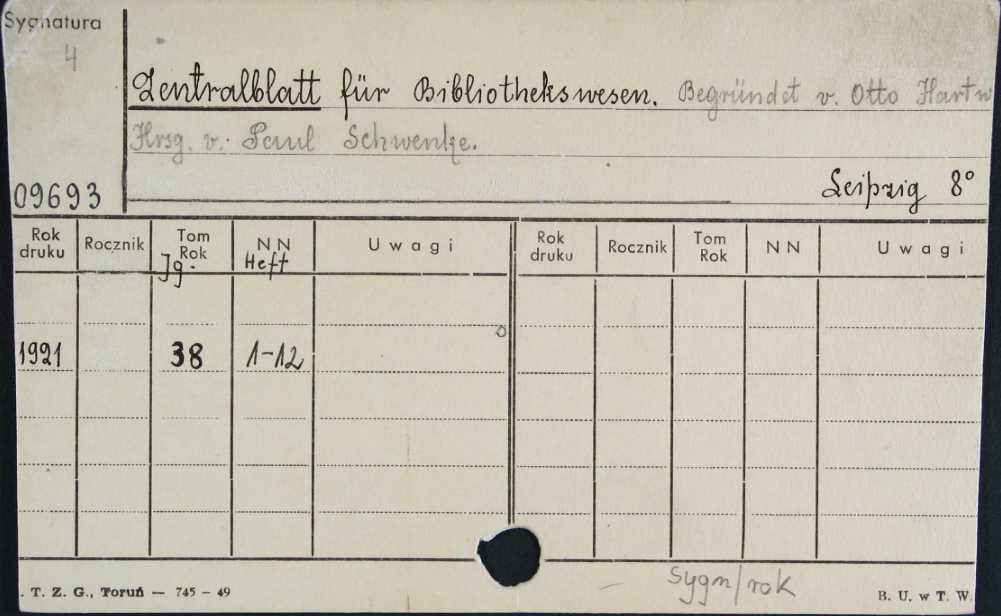 Sygnatura
4
Zentralblatt für Bibliothekswesen. Begründet v. Otto Hartw
Hrsg. v. Paul Schwenke.
09693
Leipzig 8°
Rok druku Rocznik Tom Rok Jg. NN Heft Uwagi Rok druku Rocznik Tom Rok NN Uwagi
1921 38 1-12
Sygn/rok
. T. Z. G., Toruń — 745 - 49 B. U. w T. W.